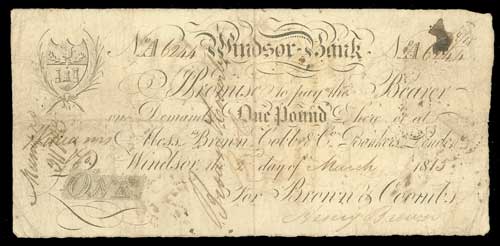 No. A6244 Windsor-Bank No. A6244
I Promise to pay the Bearer
on Demand One Pound here or at
Mess. Brown, Cobb & Co. Bankers, London
Windsor, the 2 day of March 1815
For Brown & Coombs
ONE